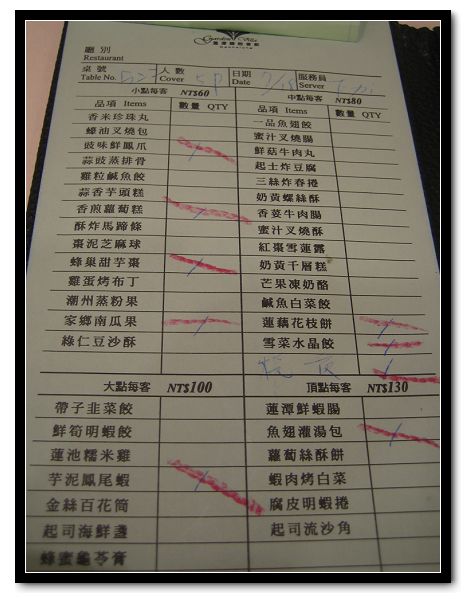 Garden Villa
廳 別
Restaurant
桌 號 人 數 日期 服務員
Table No. Cover Date Server
小點每客 NT$60 中點每客 NT$80
品項 Items 數量 QTY 品項 Items 數量 QTY
香米珍珠丸 一品魚翅餃
蠔油叉燒包 蜜汁叉燒腸
豉味鮮鳳爪 鮮菇牛肉丸
蒜豉蒸排骨 起士炸豆腐
雞粒鹹魚餃 三絲炸春捲
蒜香芋頭糕 奶黃螺絲酥
香煎蘿蔔糕 香荽牛肉腸
酥炸馬蹄條 蜜汁叉燒酥
棗泥芝麻球 紅棗雪蓮露
蜂巢甜芋棗 奶黃千層糕
雞蛋烤布丁 芒果凍奶酪
潮州蒸粉果 鹹魚白菜餃
家鄉南瓜果 蓮藕花枝餅
綠仁豆沙酥 雪菜水晶餃
大點每客 NT$100 頂點每客 NT$130
帶子韭菜餃 蓮潭鮮蝦腸
鮮筍明蝦餃 魚翅灌湯包
蓮池糯米雞 蘿蔔絲酥餅
芋泥鳳尾蝦 蝦肉烤白菜
金絲百花筒 腐皮明蝦捲
起司海鮮盞 起司流沙角
蜂蜜龜苓膏